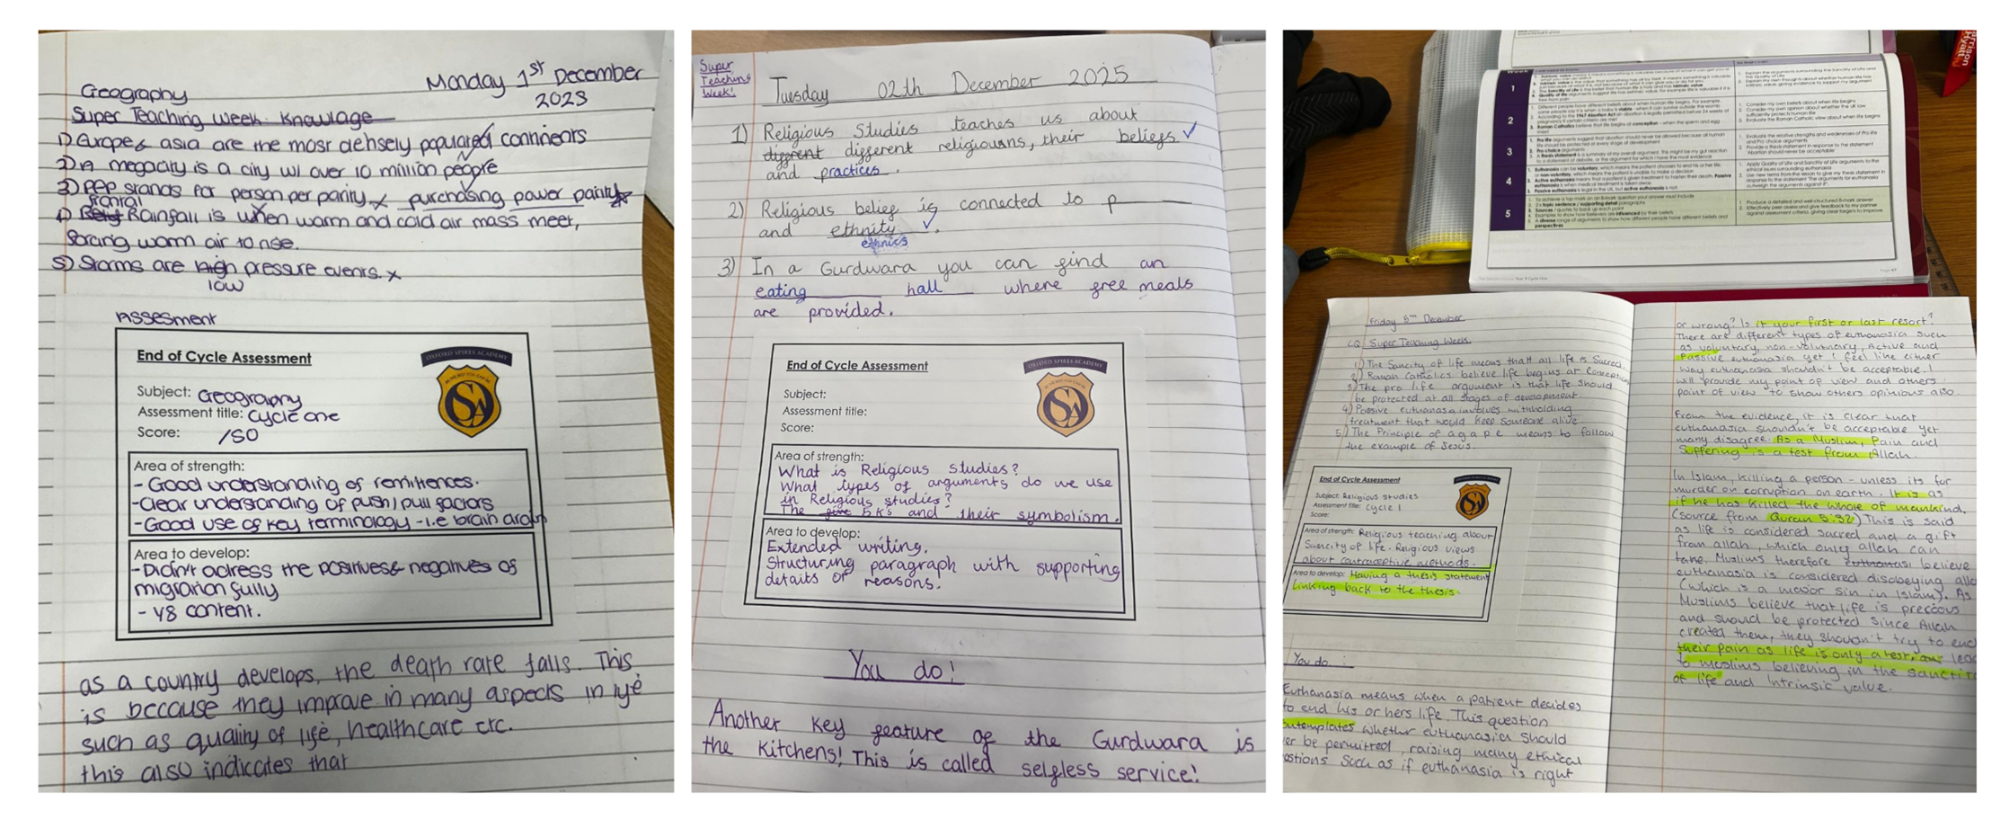 Geography
Monday 1st December
2023
Super Teaching Week Knowlage
1) Europe & asia are the most densely populated continents
2) A megacity is a city w/ over 10 million people
3) PPP stands for person per parity x purchasing power parity
frontal
4) Rainfall is when warm and cold air mass meet,
forcing worm air to rise.
5) Storms are high pressure events. x
low
ASSESMENT
End of Cycle Assessment
OXFORD SPIRES ACADEMY
Subject: Geography
Assessment title: cycle one
Score: /50
Area of strength:
- Good understanding of remittences.
- Clear understanding of push/pull factors
- Good use of key terminology - i.e brain drain
Area to develop:
- Didn't adress the positives & negatives of
migration fully
- Y8 content.
as a country develops, the death rate falls. This
is because they improve in many aspects in life
such as quality of life, healthcare etc.
this also indicates that
Super
Teaching
Week!
Tuesday 02th December 2025
1) Religious Studies teaches us about
different different religiouns, their beliefs
and practices.
2) Religious belief is connected to p
and ethnity
ethnics
3) In a Gurdwara you can find an
eating hall where free meals
are provided.
End of Cycle Assessment
OXFORD SPIRES ACADEMY
Subject:
Assessment title:
Score:
Area of strength:
What is Religious studies?
What types of arguments do we use
in Religious studies?
The five 5k's and their symbolism.
Area to develop:
Extended writing.
Structuring paragraph with supporting
details or reasons.
You do!
Another key feature of the Gurdwara is
the Kitchens! This is called selfless service!
1
2
3
4
5
Friday 5th December
LQ Super Teaching Week
1) The Sancity of life means that all life is Sacred
2) Roman Catholics believe life begins at Conception
3) The pro life argument is that life should
be protected at all stages of development
4) Passive euthanasia involves withholding
treatment that would keep someone alive
5) The Principle of agape means to follow
the example of Jesus.
End of Cycle Assessment
Subject: Religious studies
Assessment title: Cycle 1
Score:
Area of strength: Religious teaching about
Sancity of life. Religious views
about contraceptive methods.
Area to develop: Having a thesis statement
Linking back to the thesis
You do:
Euthanasia means when a patient decides
to end his or hers life. This question
contemplates whether euthanasia should
er be permitted, raising many ethical
estions such as if euthanasia is right
or wrong? Is it your first or last resort?
There are different types of euthanasia such
as voluntary, non-voluntary, Active and
Passive euthanasia yet I feel like either
way euthanasia shouldn't be acceptable. I
will provide my point of view and others
point of view to show others opinions also
From the evidence, it is clear that
euthanasia shouldn't be acceptable yet
many disagree. As a Muslim, Pain and
Suffering is a test from Allah.
In Islam, killing a person - unless its for
murder or corruption on earth - It is as
if he has killed the whole of mankind.
(source from Quran 5:32) This is said
as life is considered sacred and a gift
from allah, which only allah can
take. Muslims therefore euthanasi believe
euthanasia is considered disobeying alla
(which is a major sin in Islam). As
Muslims believe that life is precious
and should be protected since Allah
created them, they shouldn't try to end
their pain as life is only a test, lea
to muslims believing in the sanctit
of life and intrinsic value.